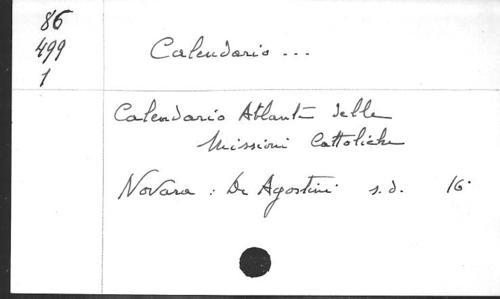 86
499
1
Calendario ...
Calendario Atlante delle
Missioni Cattoliche
Novara : De Agostini s.d. 16°